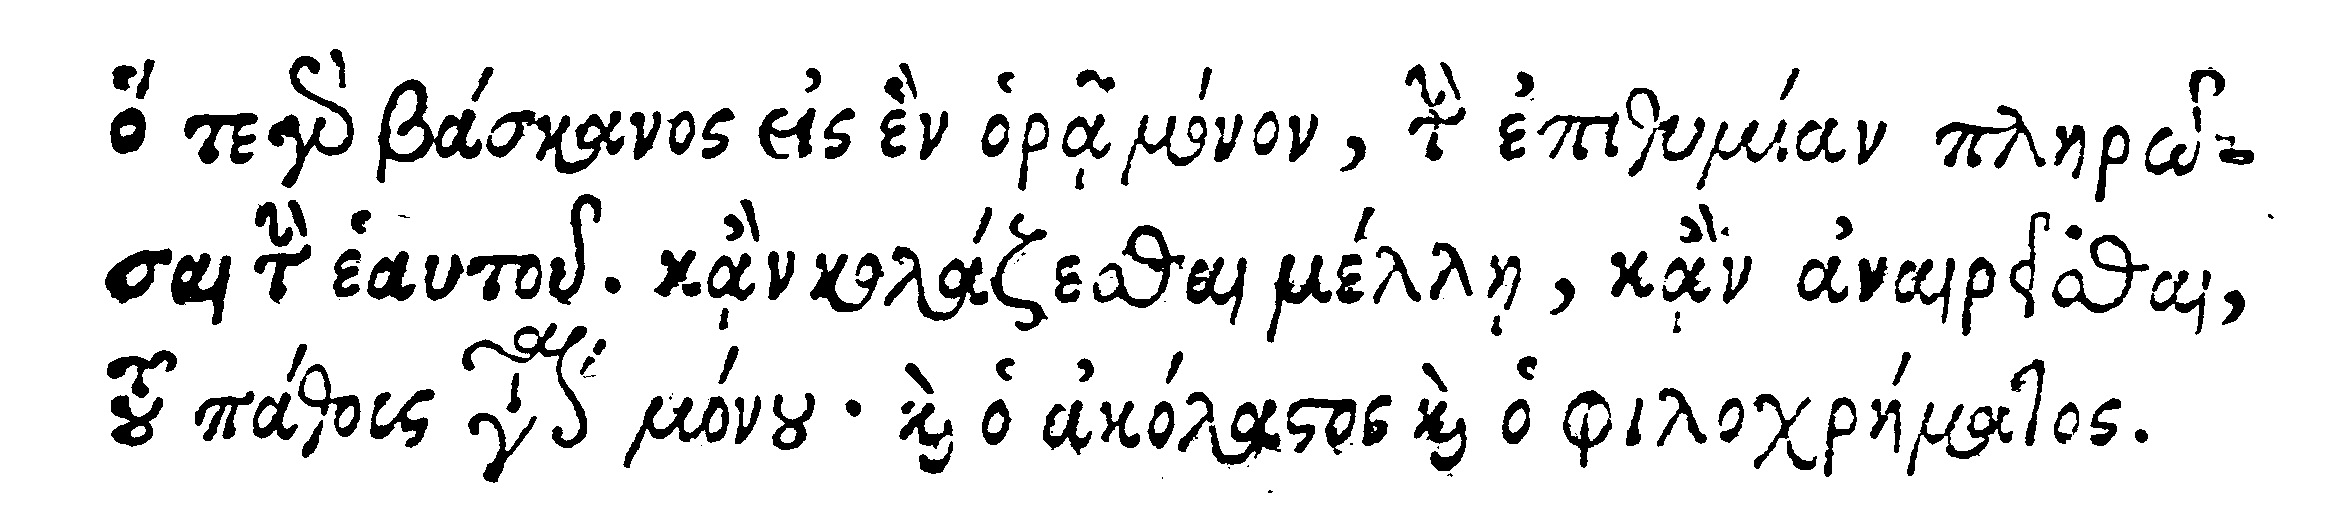 ὅ τε γὰρ βάσκανος εἰς ἓν ὁρᾷ μόνον, τὴν ἐπιθυμίαν πληρῶ-
σαι τὴν ἑαυτοῦ. κᾂν κολάζεσθαι μέλλῃ, κᾂν ἀναιρεῖσθαι,
τοῦ πάθους γίνεται μόνου· καὶ ὁ ἀκόλαστος καὶ ὁ φιλοχρήματος.